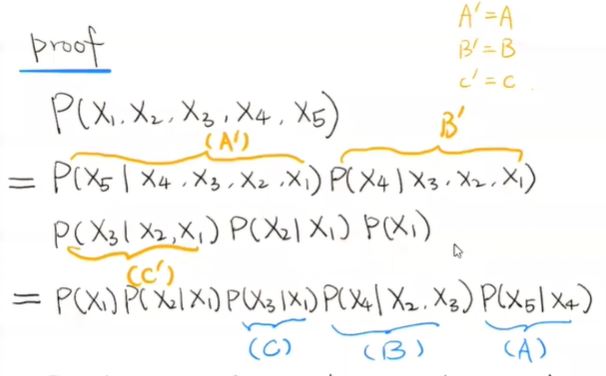 proof
A' = A
B' = B
C' = C
P(X₁, X₂, X₃, X₄, X₅)
(A') B'
= P(X₅ | X₄, X₃, X₂, X₁) P(X₄ | X₃, X₂, X₁)
P(X₃ | X₂, X₁) P(X₂ | X₁) P(X₁)
(C')
= P(X₁) P(X₂ | X₁) P(X₃ | X₁) P(X₄ | X₂, X₃) P(X₅ | X₄)
(C) (B) (A)